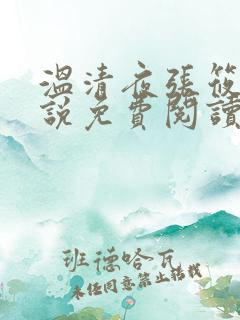 溫清夜張筱
說免費閱讀
班德哈瓦
未经同意禁止转载